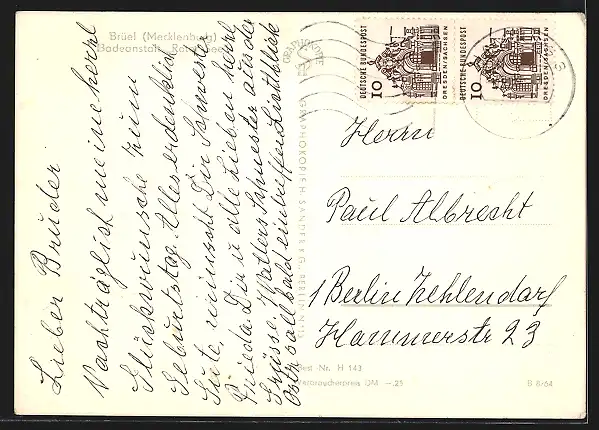 Brüel (Mecklenburg)
Badeanstalt, Roter See
Lieber Bruder
Nachträglich meine herzl
Glückwünsche zum
Geburtstag. Alles erdenklich
Gute, wünscht Dir Schwester
Frieda. Dir u alle Lieben herzl.
Grüsse. Walters Schwester aus der
Ostz. soll bald eintreffen
GRAPHOKOPIE H. SANDER KG., BERLIN N 113
Best Nr. H 143
Verbraucherpreis DM –.25
B 8/64
DEUTSCHE BUNDESPOST
10
DRESDEN/SACHSEN
DEUTSCHE BUNDESPOST
10
DRESDEN/SACHSEN
Herrn
Paul Albrecht
1 Berlin Zehlendorf
Hammerstr 23